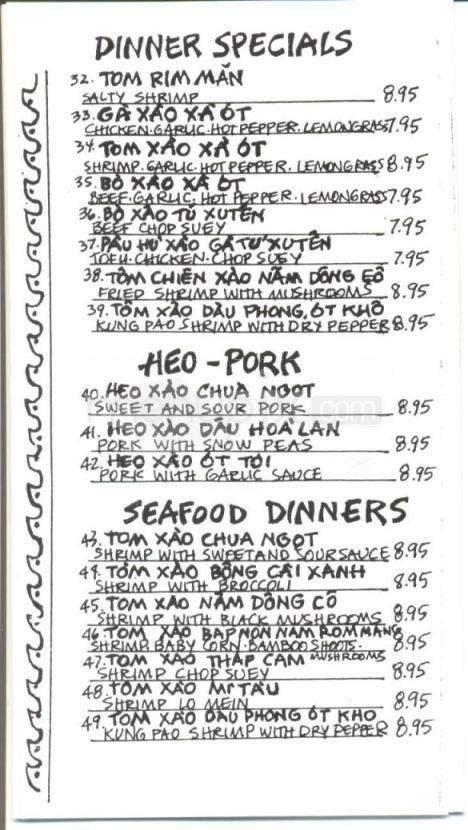 DINNER SPECIALS
32. TOM RIM MĂN
SALTY SHRIMP 8.95
33. GÀ XÀO XẢ ỚT
CHICKEN. GARLIC. HOT PEPPER. LEMONGRASS 7.95
34. TOM XÀO XẢ ỚT
SHRIMP. GARLIC. HOT PEPPER. LEMONGRASS 8.95
35. BÒ XÀO XẢ ỚT
BEEF. GARLIC. HOT PEPPER. LEMONGRASS 7.95
36. BÒ XÀO TỨ XUYÊN
BEEF CHOP SUEY 7.95
37. ĐẬU HỦ XÀO GÀ TỨ XUYÊN
TOFU. CHICKEN. CHOP SUEY 7.95
38. TÔM CHIÊN XÀO NẤM ĐÔNG CÔ
FRIED SHRIMP WITH MUSHROOMS 8.95
39. TÔM XÀO DẦU PHONG, ỚT KHÔ
KUNG PAO SHRIMP WITH DRY PEPPER 8.95
HEO - PORK
40. HEO XÀO CHUA NGOT
SWEET AND SOUR PORK 8.95
41. HEO XÀO DẦU HOÀ LAN
PORK WITH SNOW PEAS 8.95
42. HEO XÀO ỚT TỎI
PORK WITH GARLIC SAUCE 8.95
SEAFOOD DINNERS
43. TOM XÀO CHUA NGỌT
SHRIMP WITH SWEET AND SOUR SAUCE 8.95
44. TÔM XÀO BÔNG CẢI XANH
SHRIMP WITH BROCCOLI 8.95
45. TÔM XÀO NẤM ĐÔNG CÔ
SHRIMP WITH BLACK MUSHROOMS 8.95
46. TOM XÀO BAP NON NAM ROM MANG
SHRIMP. BABY CORN. BAMBOO SHOOTS. MUSHROOMS 8.95
47. TOM XAO THÂP CAM
SHRIMP CHOP SUEY 8.95
48. TOM XÀO MI TÀU
SHRIMP LO MEIN 8.95
49. TÔM XÀO DẦU PHONG ỚT KHO
KUNG PAO SHRIMP WITH DRY PEPPER 8.95